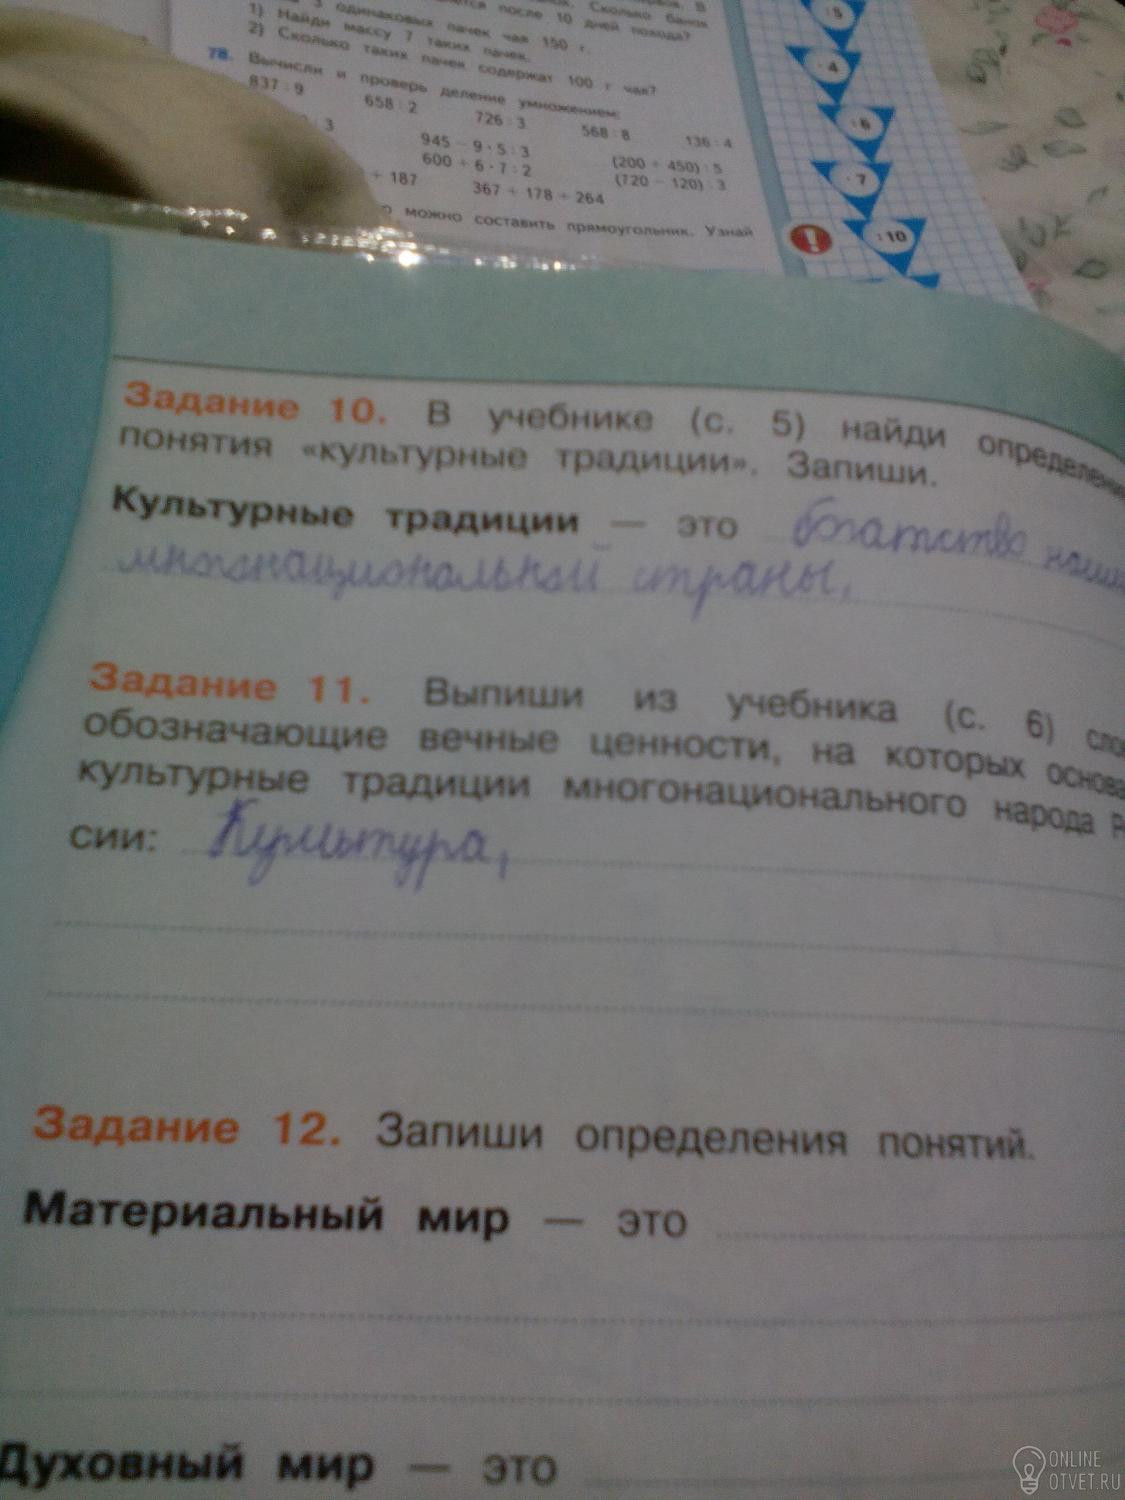 после 10 дней похода?
1) Найди массу 7 таких пачек.
2) Сколько таких пачек содержат 100 г чая?
78. Вычисли и проверь деление умножением:
837 : 9 658 : 2 726 : 3 568 : 8 136 : 4
: 3 945 − 9 · 5 : 3 (200 + 450) : 5
600 + 6 · 7 : 2 (720 − 120) : 3
+ 187 367 + 178 + 264
можно составить прямоугольник. Узнай
: 5
· 4
: 6
· 7
: 10
!
Задание 10. В учебнике (с. 5) найди
понятия «культурные традиции». Запиши.
Культурные традиции — это богатство
многонациональной страны,
Задание 11. Выпиши из учебника (с. 6)
обозначающие вечные ценности, на которых
культурные традиции многонационального народа
сии: Культура,
Задание 12. Запиши определения понятий.
Материальный мир — это
Духовный мир — это
ONLINE
OTVET.RU